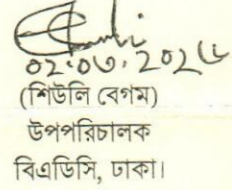 02.03.202৫
(শিউলি বেগম)
উপপরিচালক
বিএডিসি, ঢাকা।